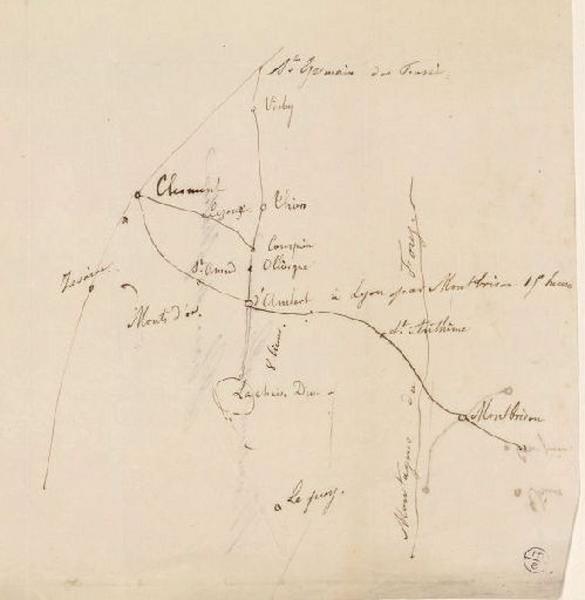 St Germain des Fossés
Vichy
Clermont
Lezoux
Thiers
Courpière
Olliergue
Issoire
St Amand
Monts d'or
d'Ambert à Lyon par Montbrison 15 heures
8 lieues
St Anthême
Lachaise Dieu
Montbrison
Montagne du Forez
Le puy.